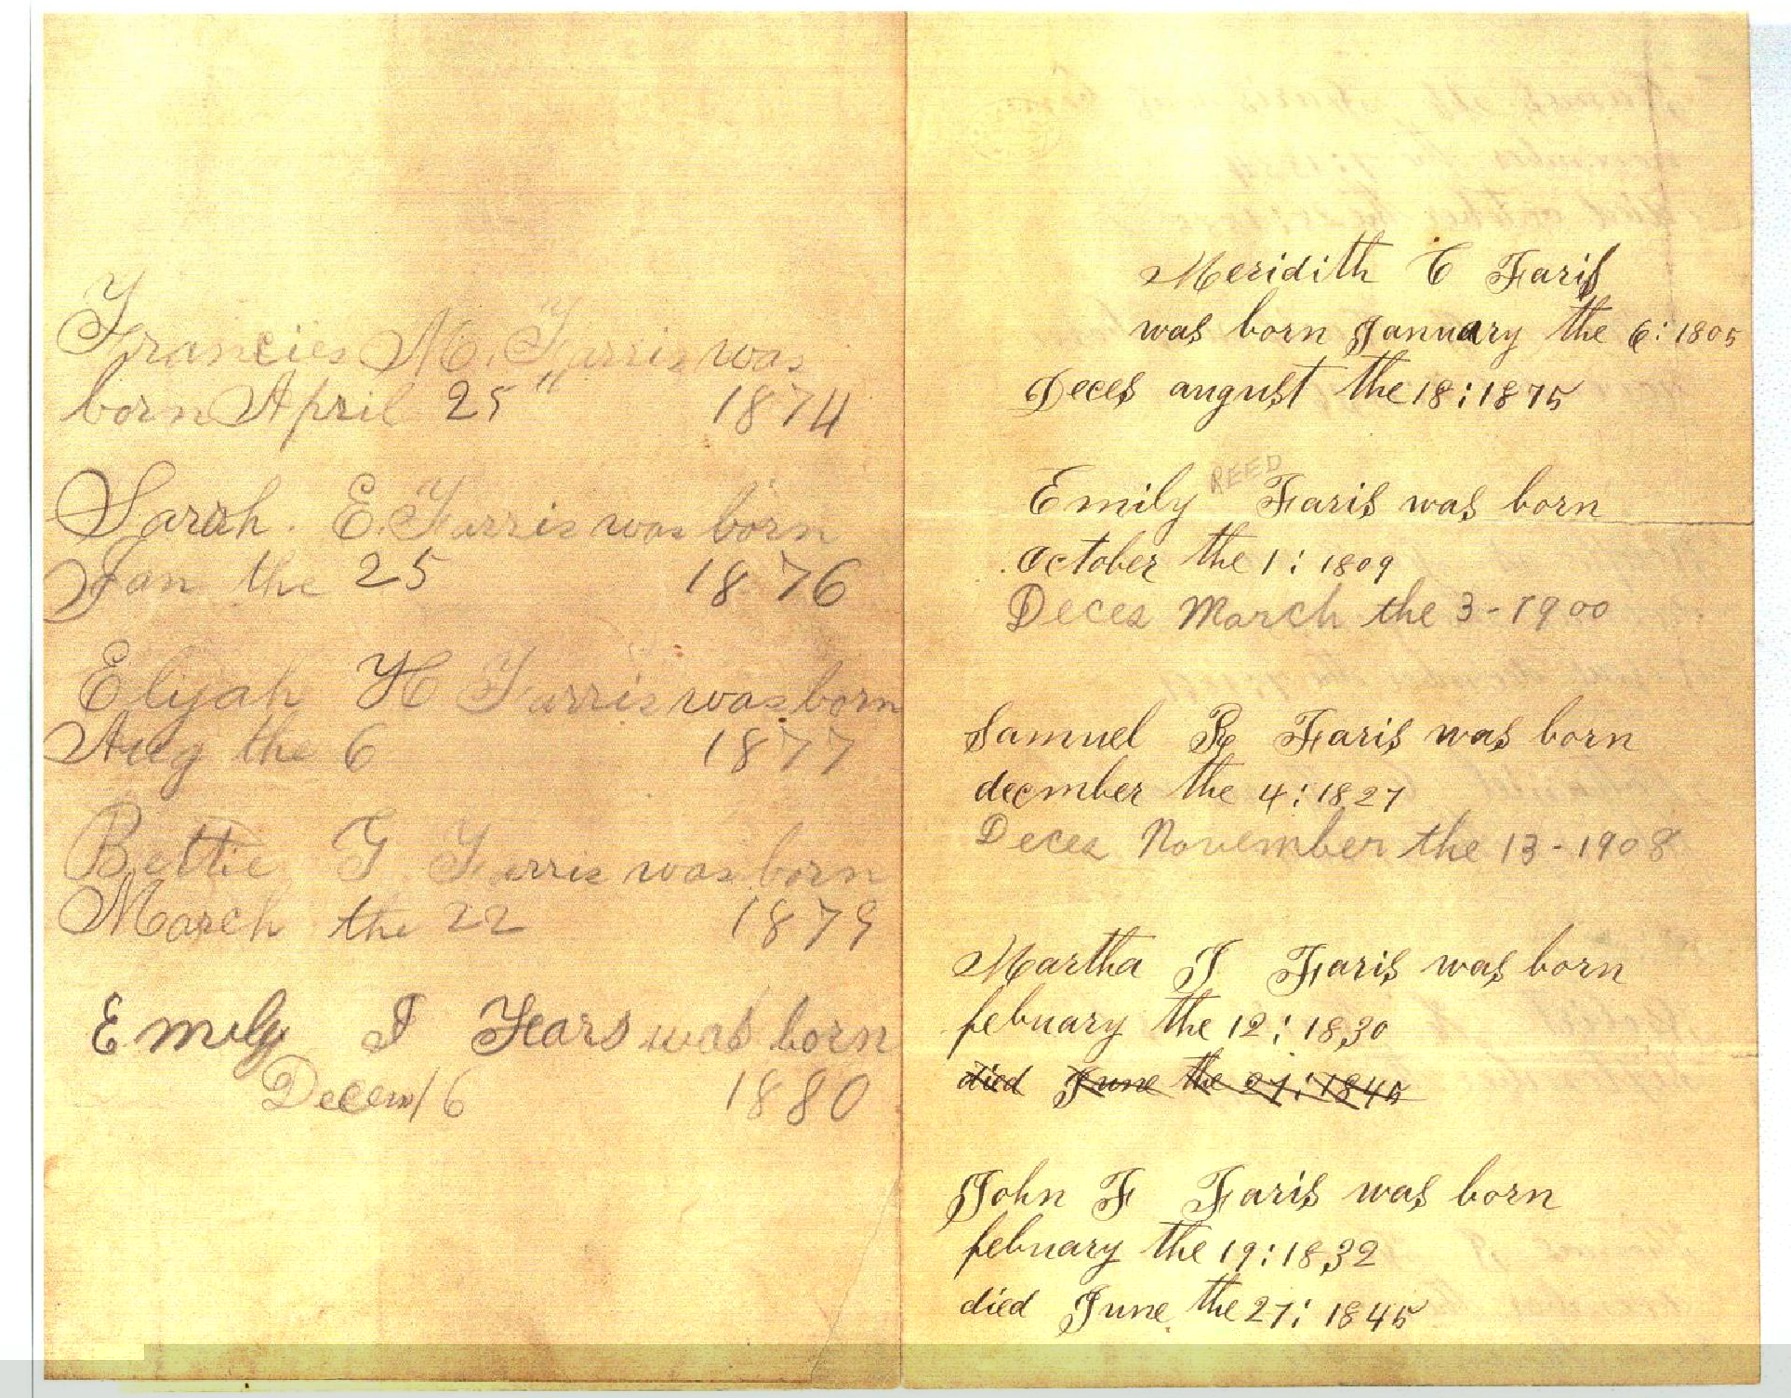 Francies M. Farris was
born April 25" 1874
Sarah. E. Farris was born
Jan the 25 1876
Elijah H Farris was born
Aug the 6 1877
Bettie F Farris was born
March the 22 1879
Emily I Fears was born
Decem 6 1880
Meridith C Faris
was born January the 6: 1805
Deces august the 18: 1875
REED
Emily Faris was born
October the 1: 1809
Deces March the 3 - 1900
Samuel R Faris was born
decmber the 4: 1827
Deces November the 13 - 1908
Martha J Faris was born
febuary the 12: 1830
died June the 27: 1845
John F Faris was born
febuary the 19: 1832
died June the 27: 1845